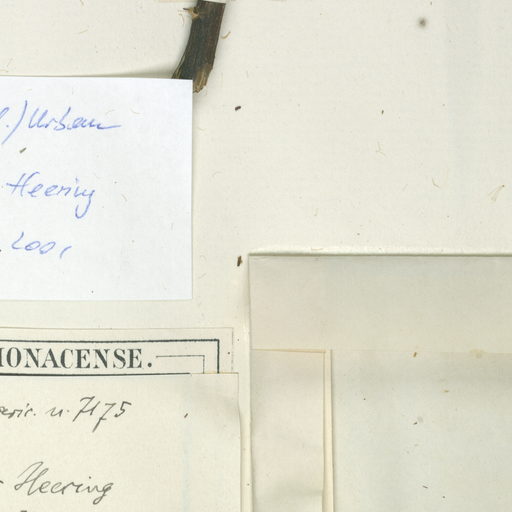 .) Urban
Heering
2001
MONACENSE.
n. 7175
Heering